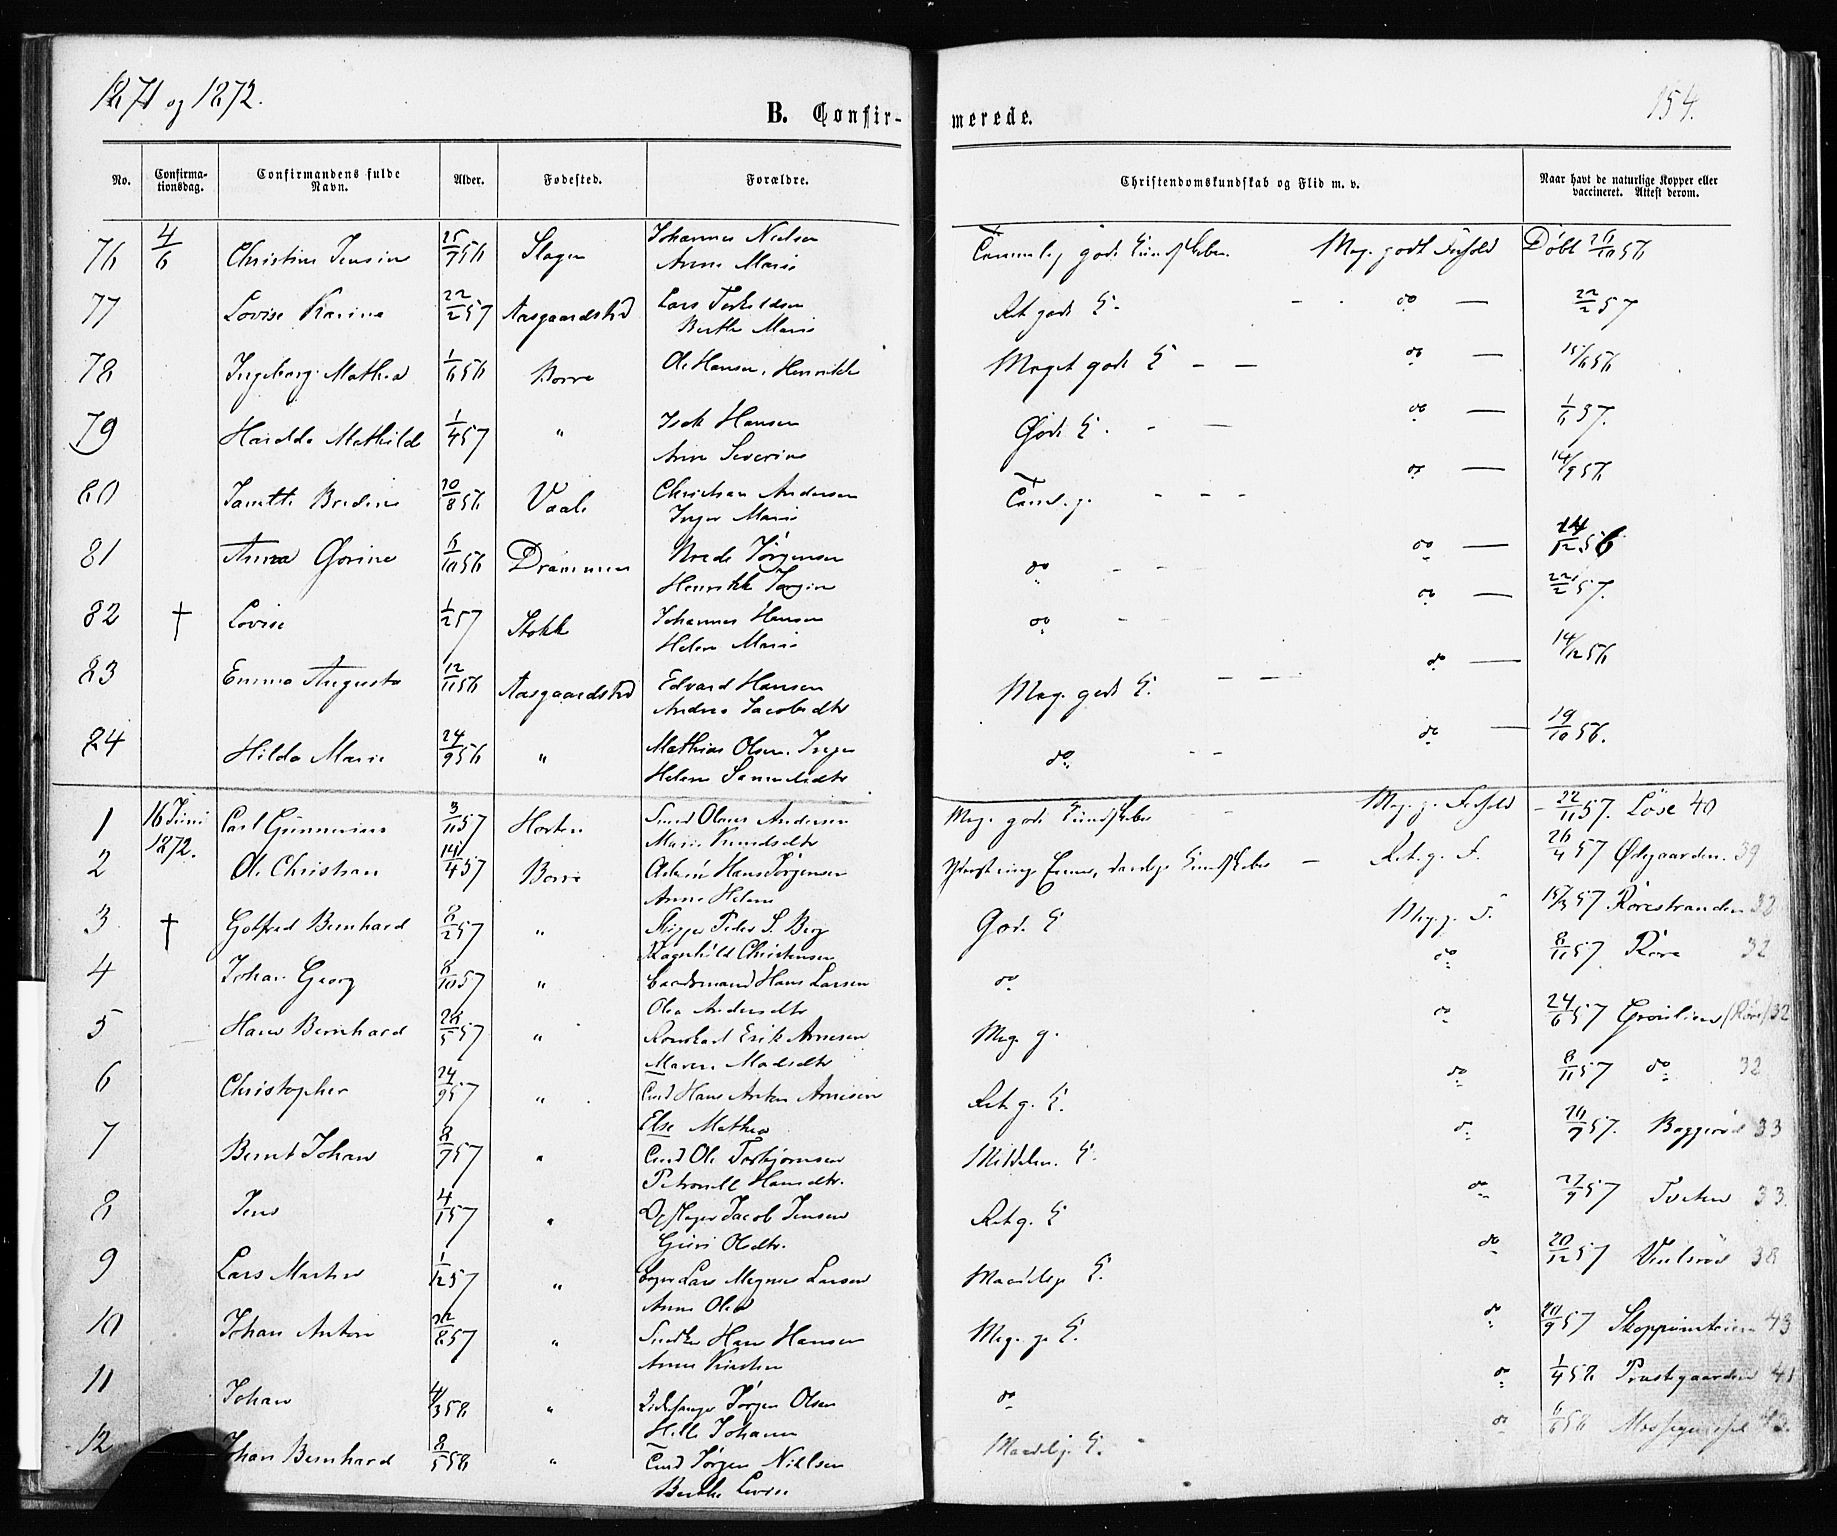 1871 og 1872.
B. Confir-
merede.
154.
No.
Confirma-
tionsdag.
Confirmandens fulde
Navn.
Alder.
Fødested.
Forældre.
Christendomskundskab og Flid m. v.
Naar havt de naturlige Kopper eller
vaccineret. Attest derom.
76 4/6 Christine Jensine 25/7 56 Slagen Johannes Nielsen Meg. godt Forhold Døbt 26/10 56
Anne Marie
77 Lovise Karine 22/2 57 Aasgaardstrd Lars Torkildsen Ret gode K. do 22/2 57
Berthe Marie
78 Ingeborg Mathea 1/6 56 Borre Ole Hansen, Henrikke Meget gode K do 15/6 56
79 Mathilde 1/4 57 " Isak Hansen Gode K. do 1/6 57.
Anne Severine
80 Bredine 20/8 56 Vaale Christian Andersen do 14/9 56
Inger Marie
81 Anna Gorine 6/10 56 Drammen Jørgensen do do 14/12 56
82 † Lovise 1/2 57 Stokke Johannes Hansen do do 22/2 57.
Helene Marie
83 Emma Augusta 12/11 56 Aasgaardstrd Edvard Hansen Meg. gode K. do 14/12 56
Andrea Jacobsdtr
84 Hilda Marie 24/9 56 " Mathias Olsen, Inger do do 19/10 56.
Helene Samuelsdtr
1 16 Juni Carl Gunnerius 3/11 57 Horten Smed Olaus Andersen Meg. gode Kundskaber Meg. g. Forhold 22/11 57. Løse 40
1872. Marie Knudsdtr
2 Ole Christian 14/4 57 Borre Hans Jørgensen Ret g. F. 26/4 57 Ødegaarden 39
Anne Helene
3 † Gotfred Bernhard 8/2 57 " Peder S. Berg God. K Meg. g. F. 15/3 57 Rørestranden 32
Ragnhild Christensen
4 Johan Georg 8/10 57 " Hans Larsen do do 8/11 57. Røre 32
Olea Andersdtr
5 Hans Bernhard 28/5 57 " Erik Arnesen Meg. g. do 24/6 57 (Røre) 32
Maren Madsdtr
6 Christopher 24/9 57 " Hans Anton Arnesen Ret g. K. do 8/11 57 do 32
Else Mathea
7 Bernt Johan 8/7 57 " Ole Torbjørnsen Middelm. K. do 26/7 57. Baggerød 33
Petronelle Hansdtr.
8 Jens 4/1 57 " Jacob Jensen Ret g. K do 27/9 57 Tveten 33
Olsdtr.
9 Lars Martin 1/12 57 " Lars Magnus Larsen Maadelige K. do 20/12 57 38
Anne Olea
10 Johan Anton 22/8 57 " Snedker Hans Hansen Meg. g. K. do 20/9 57 43
Anne Kirstine
11 Johan 4/3 58 " Jørgen Olsen do do 1/4 58 Præstegaarden 41
Helle Johanne
12 Johan Bernhard 8/5 58 " Jørgen Nielsen Maadelige K. do 6/6 58 43.
Berthe Lovise